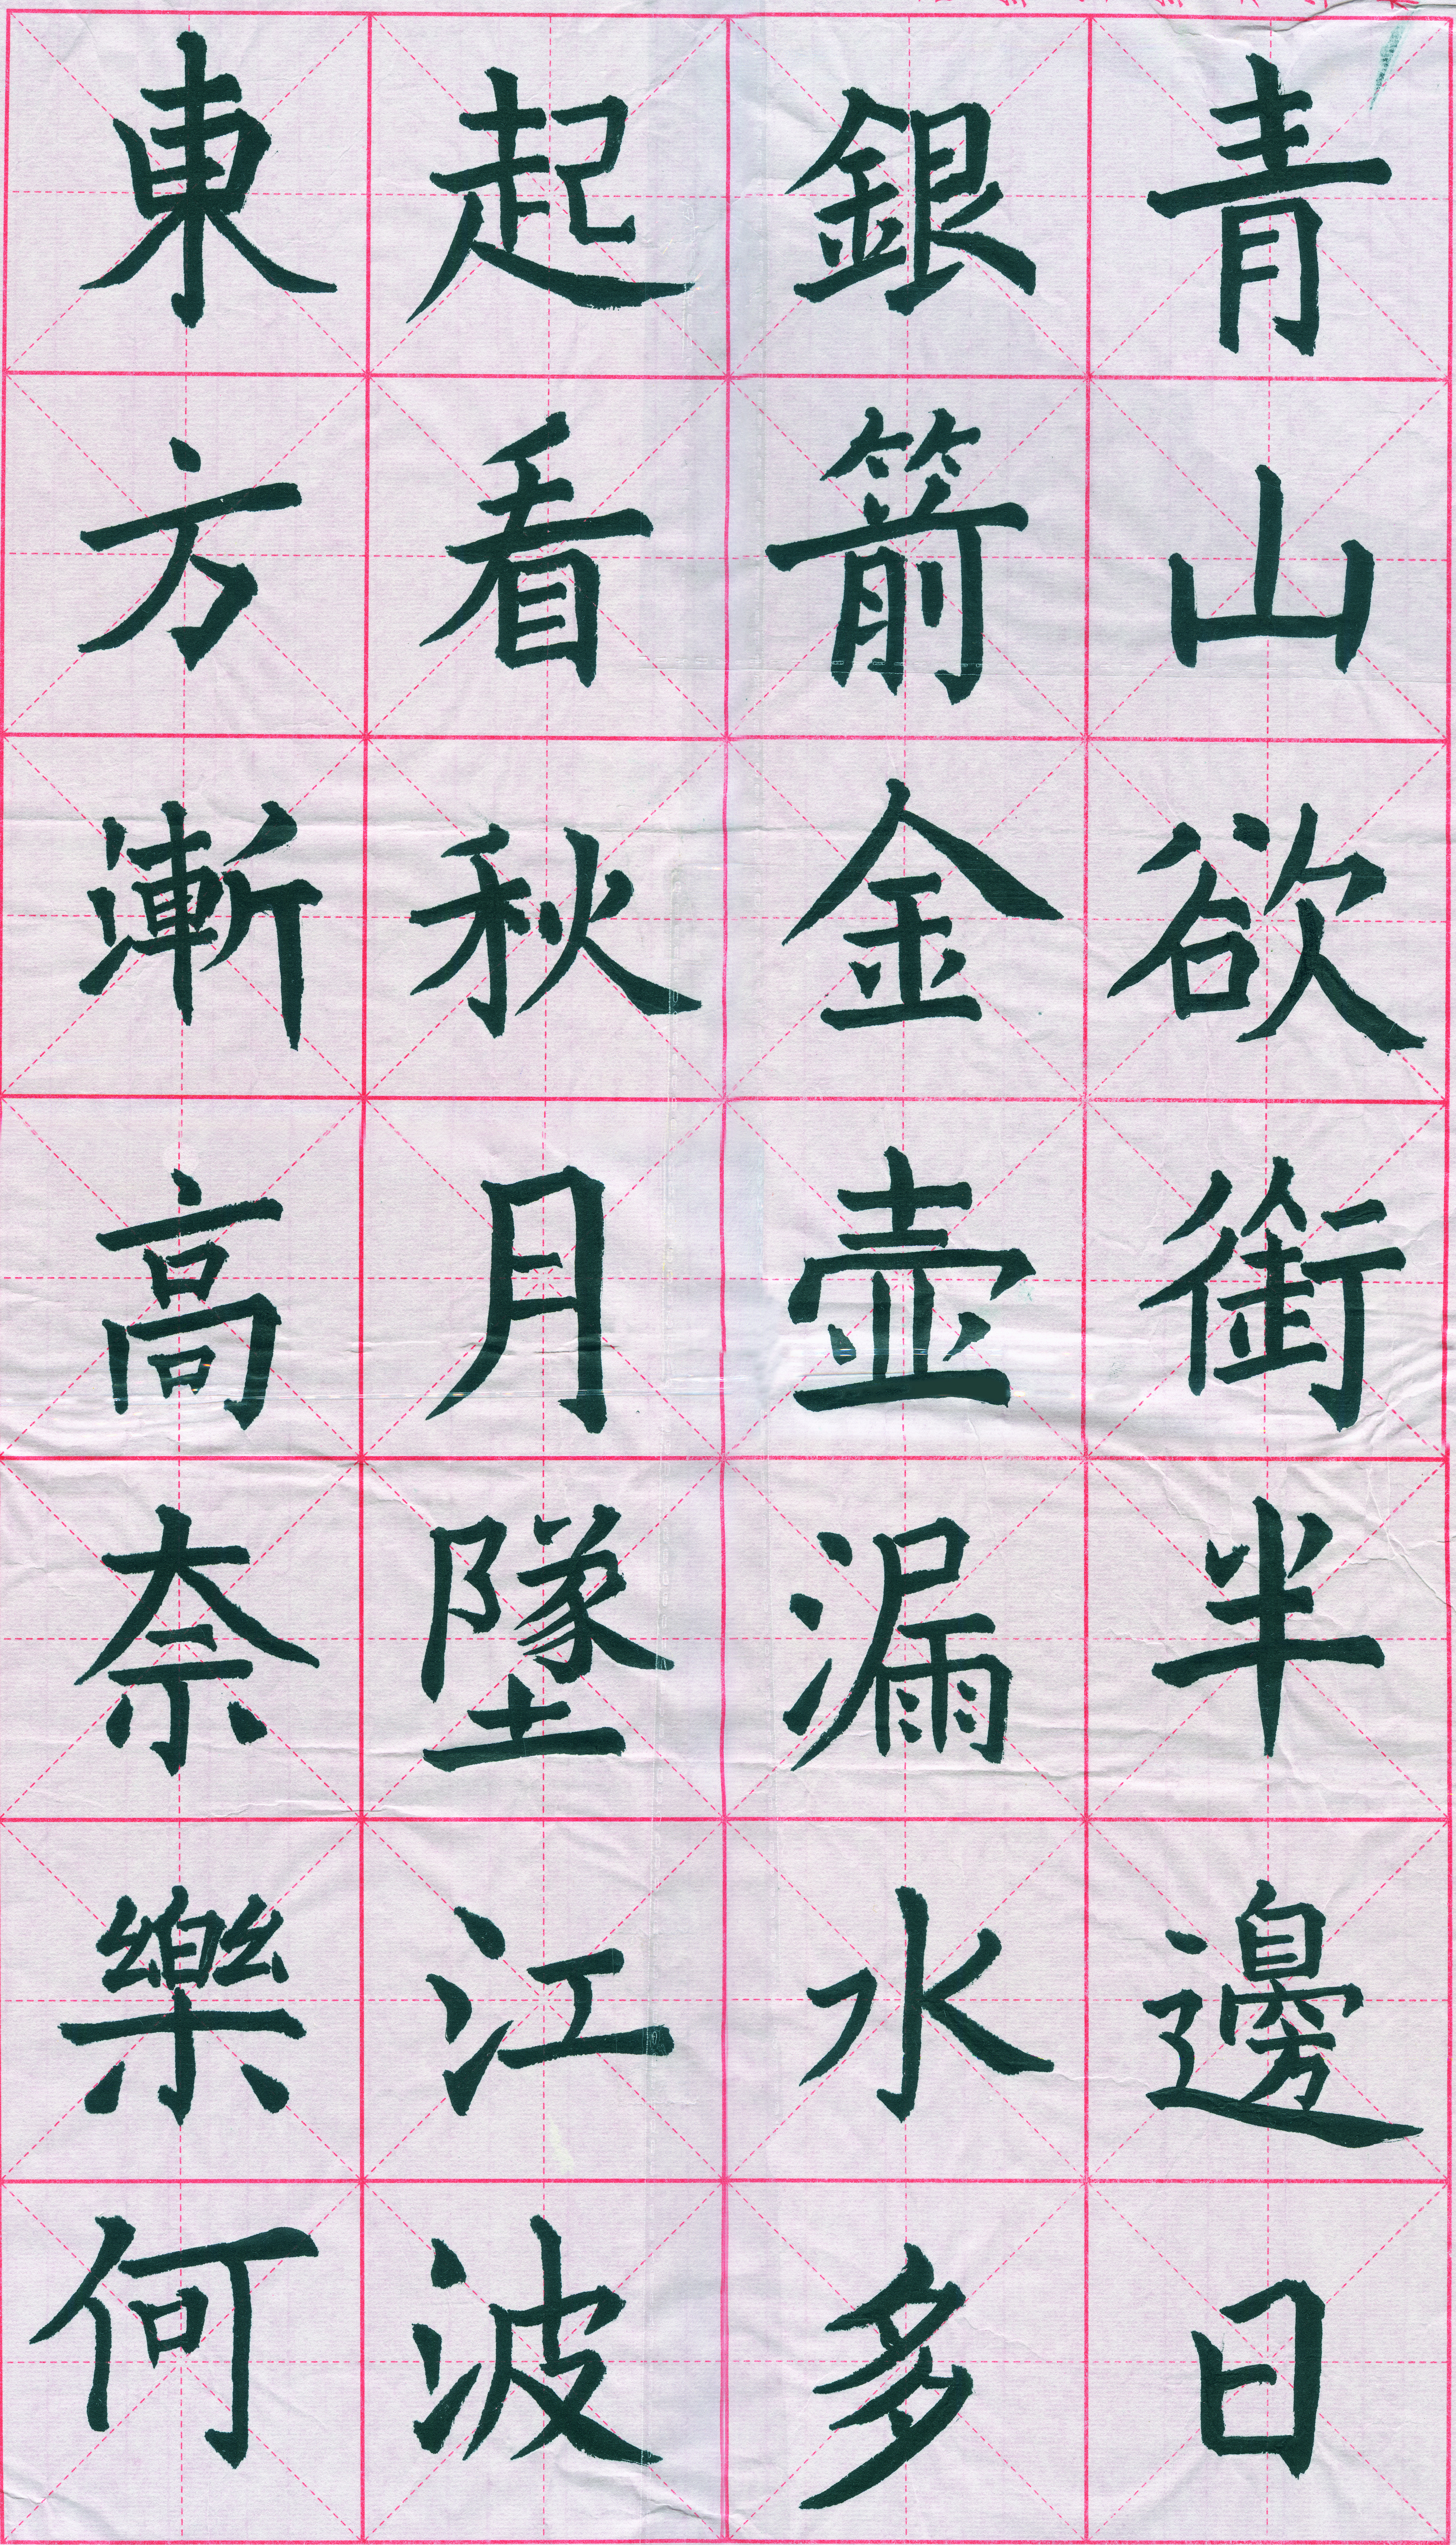 青山欲銜半邊日
銀箭金壺漏水多
起看秋月墜江波
東方漸高奈樂何